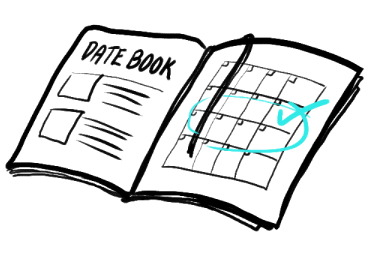 DATE BOOK